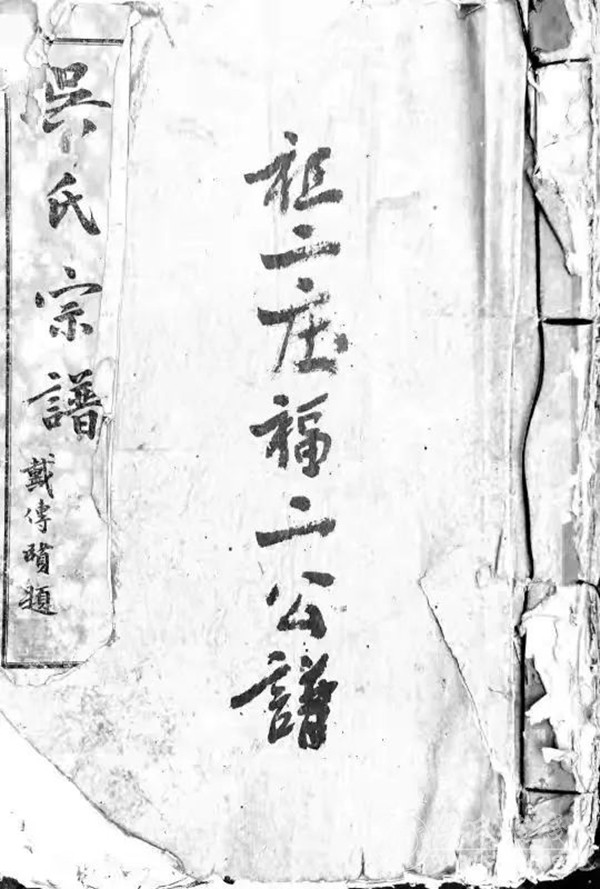 祖二庄福二公譜
吳氏宗譜
戴傳題